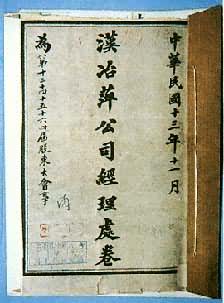 中華民國十三年十一月
漢冶萍公司經理處卷
為第十二、十五十六屆股東大會事